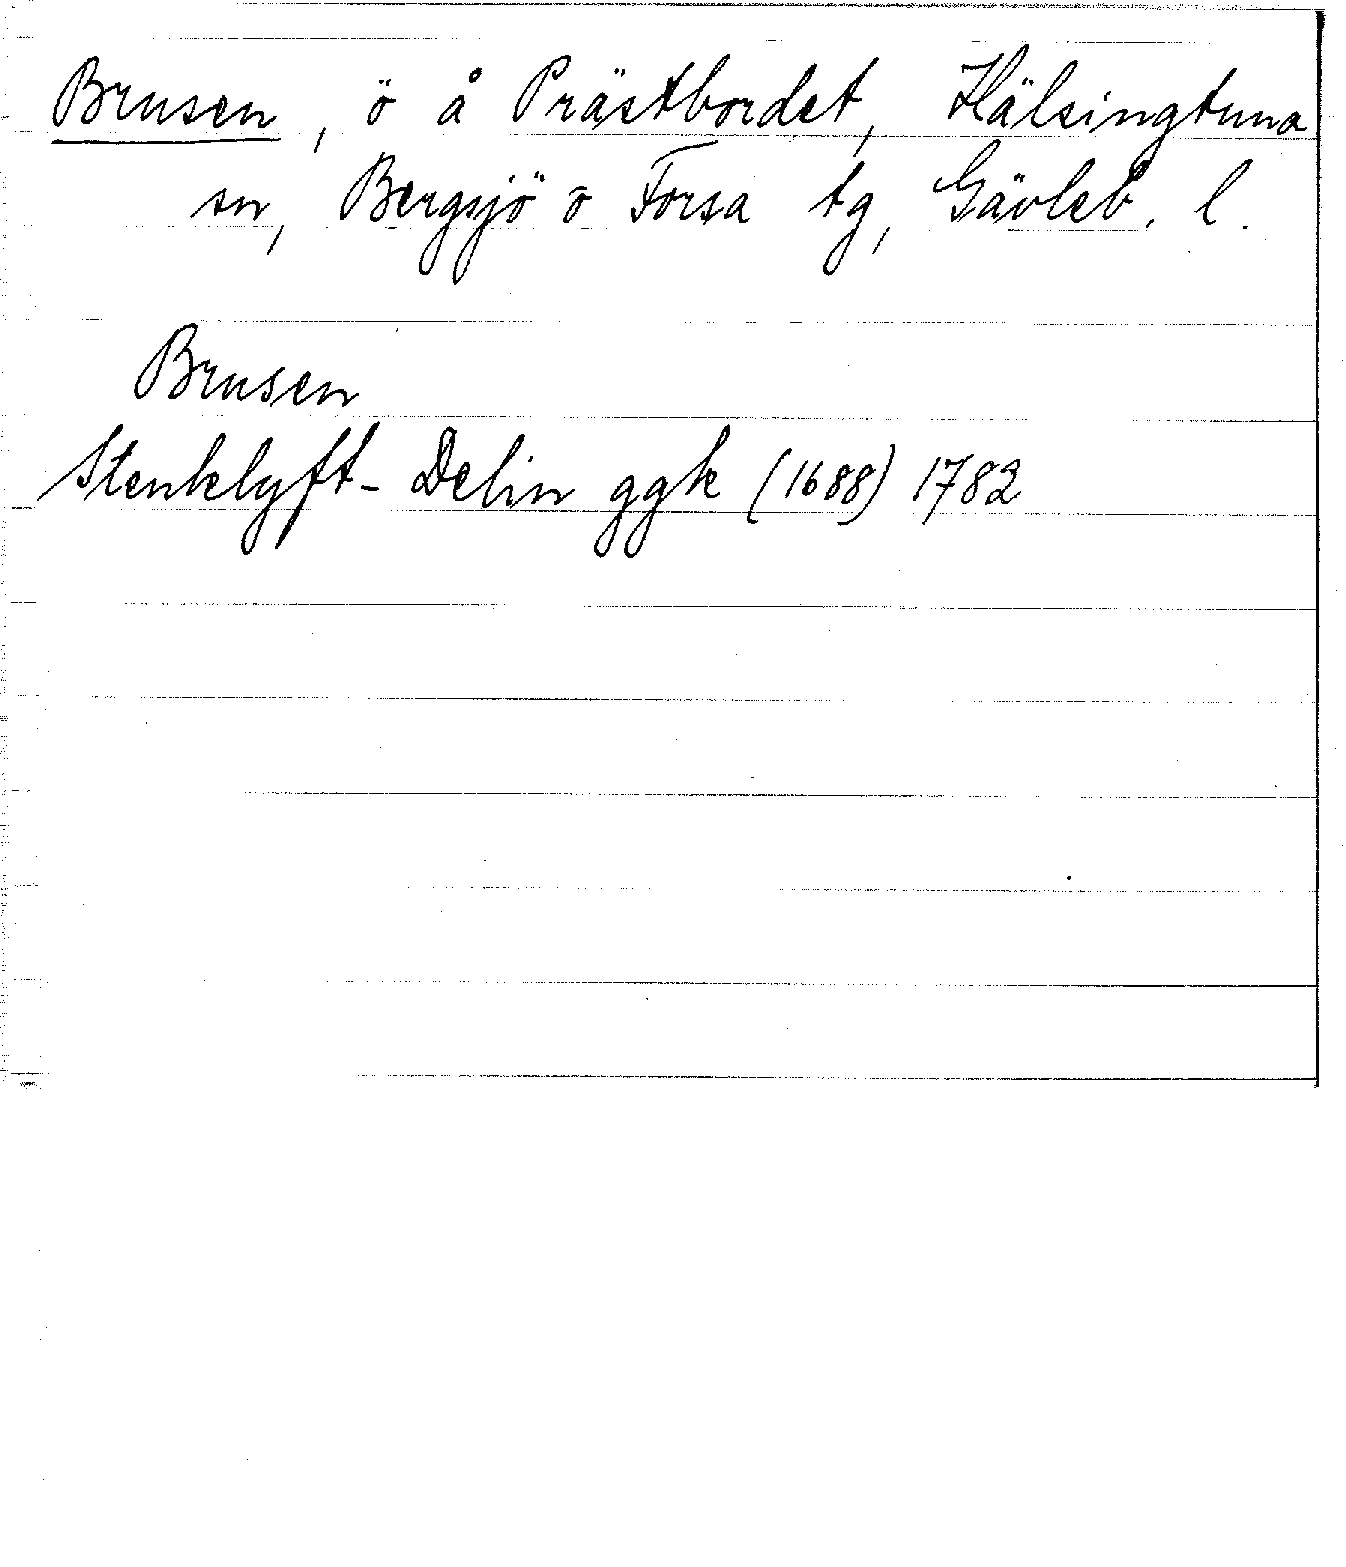 Brusen, ö å Prästbordet, Hälsingtuna
sn, Bergsjö o Forsa tg, Gävleb. l.
Brusen
Stenklyft- Delin ggk (1688) 1782